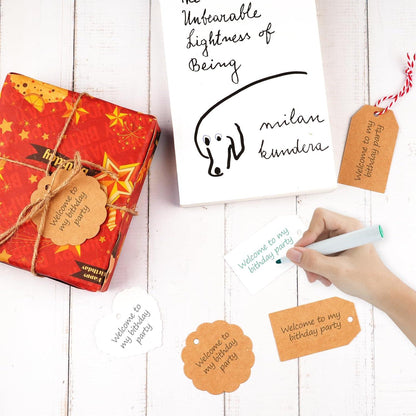 The
Unbearable
Lightness of
Being
milan
kundera
Welcome to
my bithday
party
Welcome to
my bithday
party
Welcome to
my bithday
party
Welcome to
my bithday
party
Welcome to
my bithday
party
Welcome to my
birthday party
Happy
Birthday
Happy
Birthday